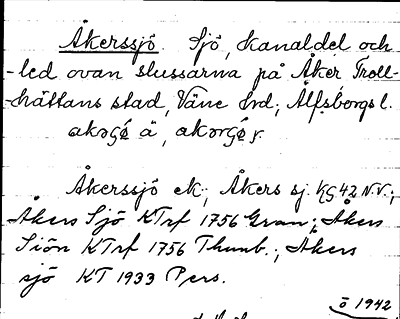 Åkerssjö Sjö, kanaldel och
-led ovan slussarna på Åker Troll-
hättans stad, Väne hd; Älfsborgs l.
Åkerssjö ek; Åkers sj. KG 42 NV;
Åkers Sjö KTrf 1756 Gran; Åkers
Siön KTrf 1756 Thunb.; Åkers
sjö KT 1933 Pers.
ö 1942